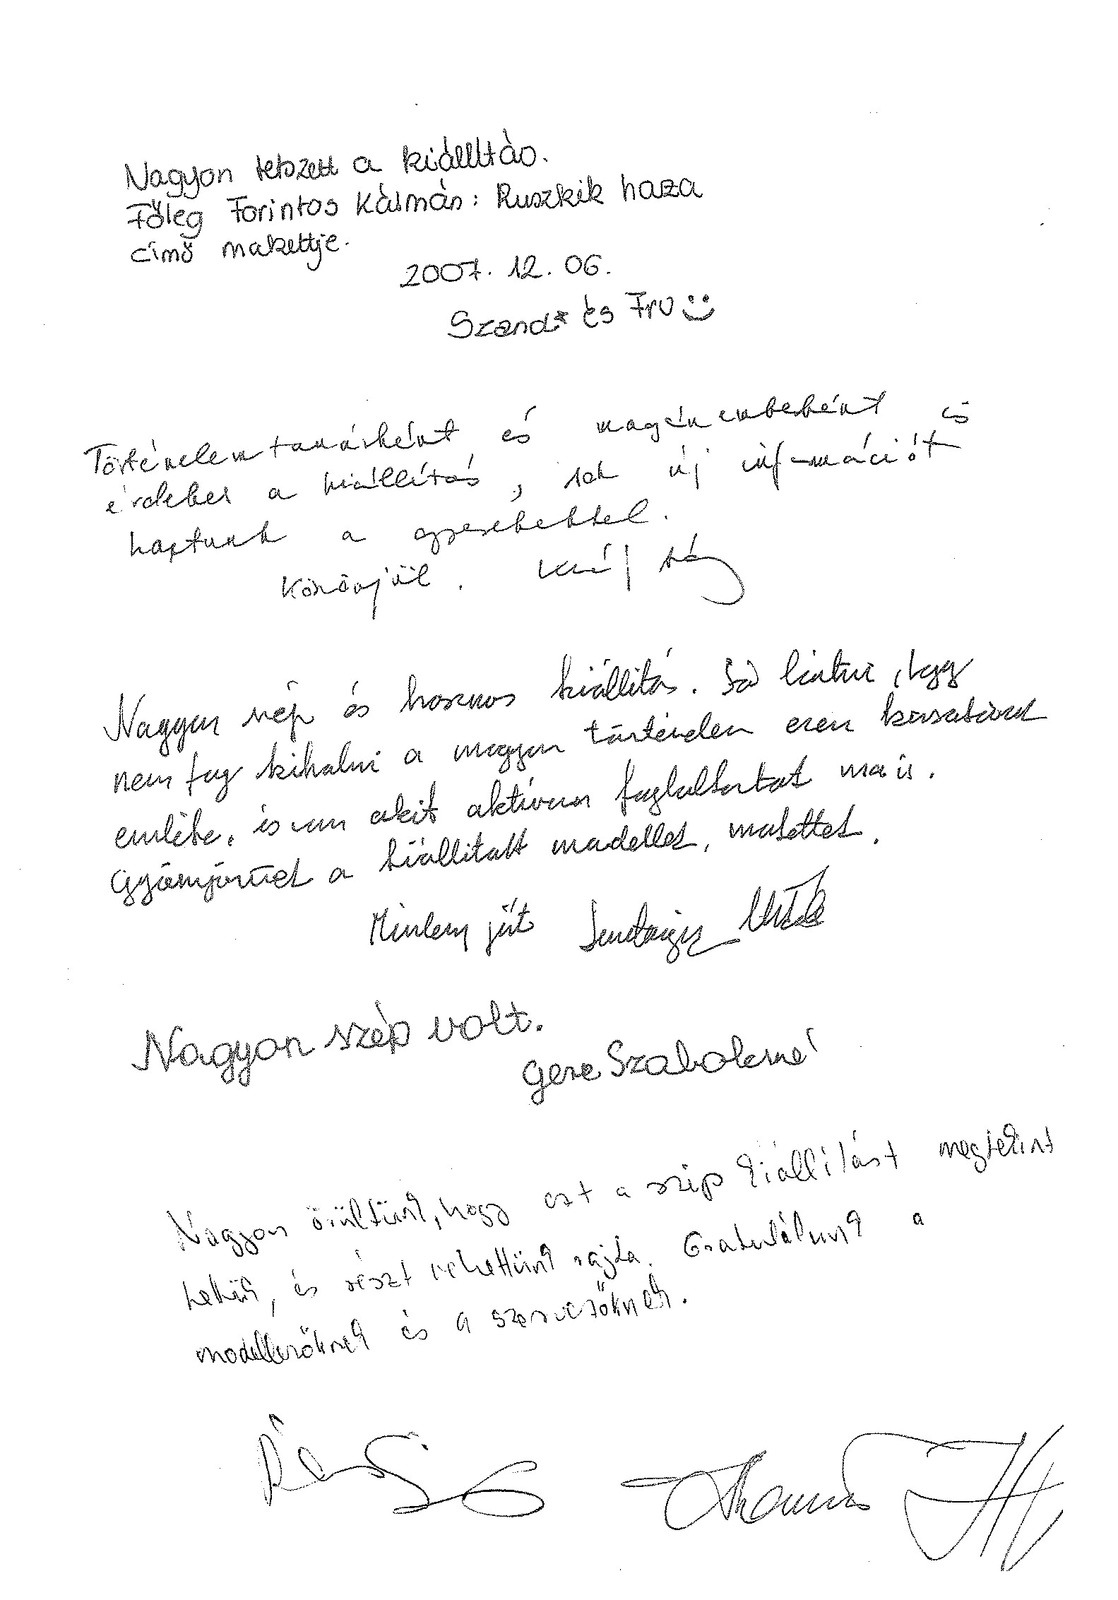 Nagyon tetszett a kiállítás.
Főleg Forintos Kálmán: Ruszkik haza
című makettje.
2007. 12. 06.
Szand* és Fru
Történelem tanárként és magánemberként is
érdekes a kiállítás, sok új információt
kaptunk a gyerekekkel.
Köszönjük.
Nagyon szép és hasznos kiállítás. Jó látni, hogy
nem fog kihalni a magyar történelem ezen korszakának
emléke, és van akit aktívan foglalkoztat ma is.
Gyönyörűek a kiállított modellek, makettek.
Minden jót
Nagyon szép volt.
Gere Szabolcsné
Nagyon örültünk, hogy ezt a szép kiállítást megtekint
hettük, és részt vehettünk rajta. Gratulálunk a
modellezőknek és a szervezőknek.